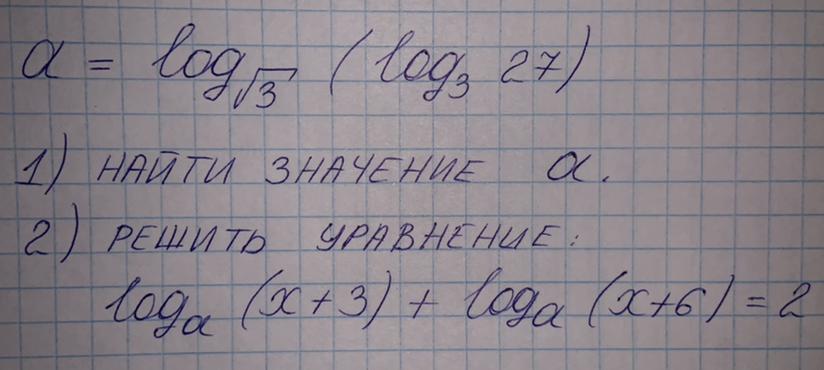 a = log√3 (log3 27)
1) НАЙТИ ЗНАЧЕНИЕ a.
2) РЕШИТЬ УРАВНЕНИЕ:
loga (x+3) + loga (x+6) = 2